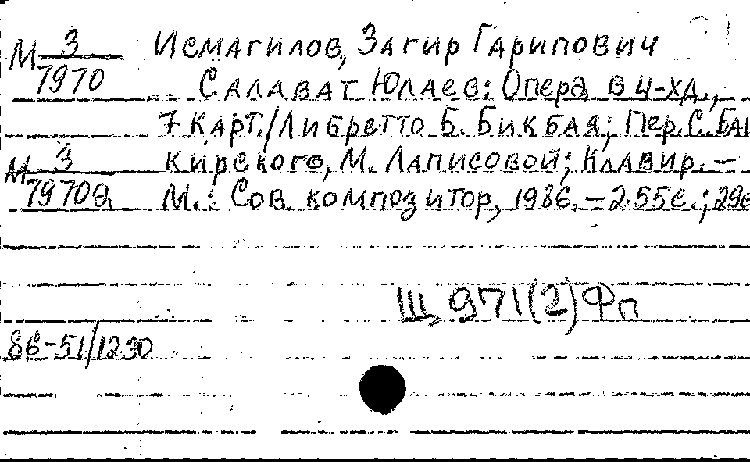 М 3/7970
Исмагилов, Загир Гарипович
Салават Юлаев: Опера в 4-х д.,
7 карт. / Либретто Б. Бикбая; Пер. с. Баш
М 3/7970а
кирского, М. Лаписовой; Клавир. –
М.: Сов. композитор, 1986. – 255 с.; 29с
Щ 971(2)Фп
86-51/1230